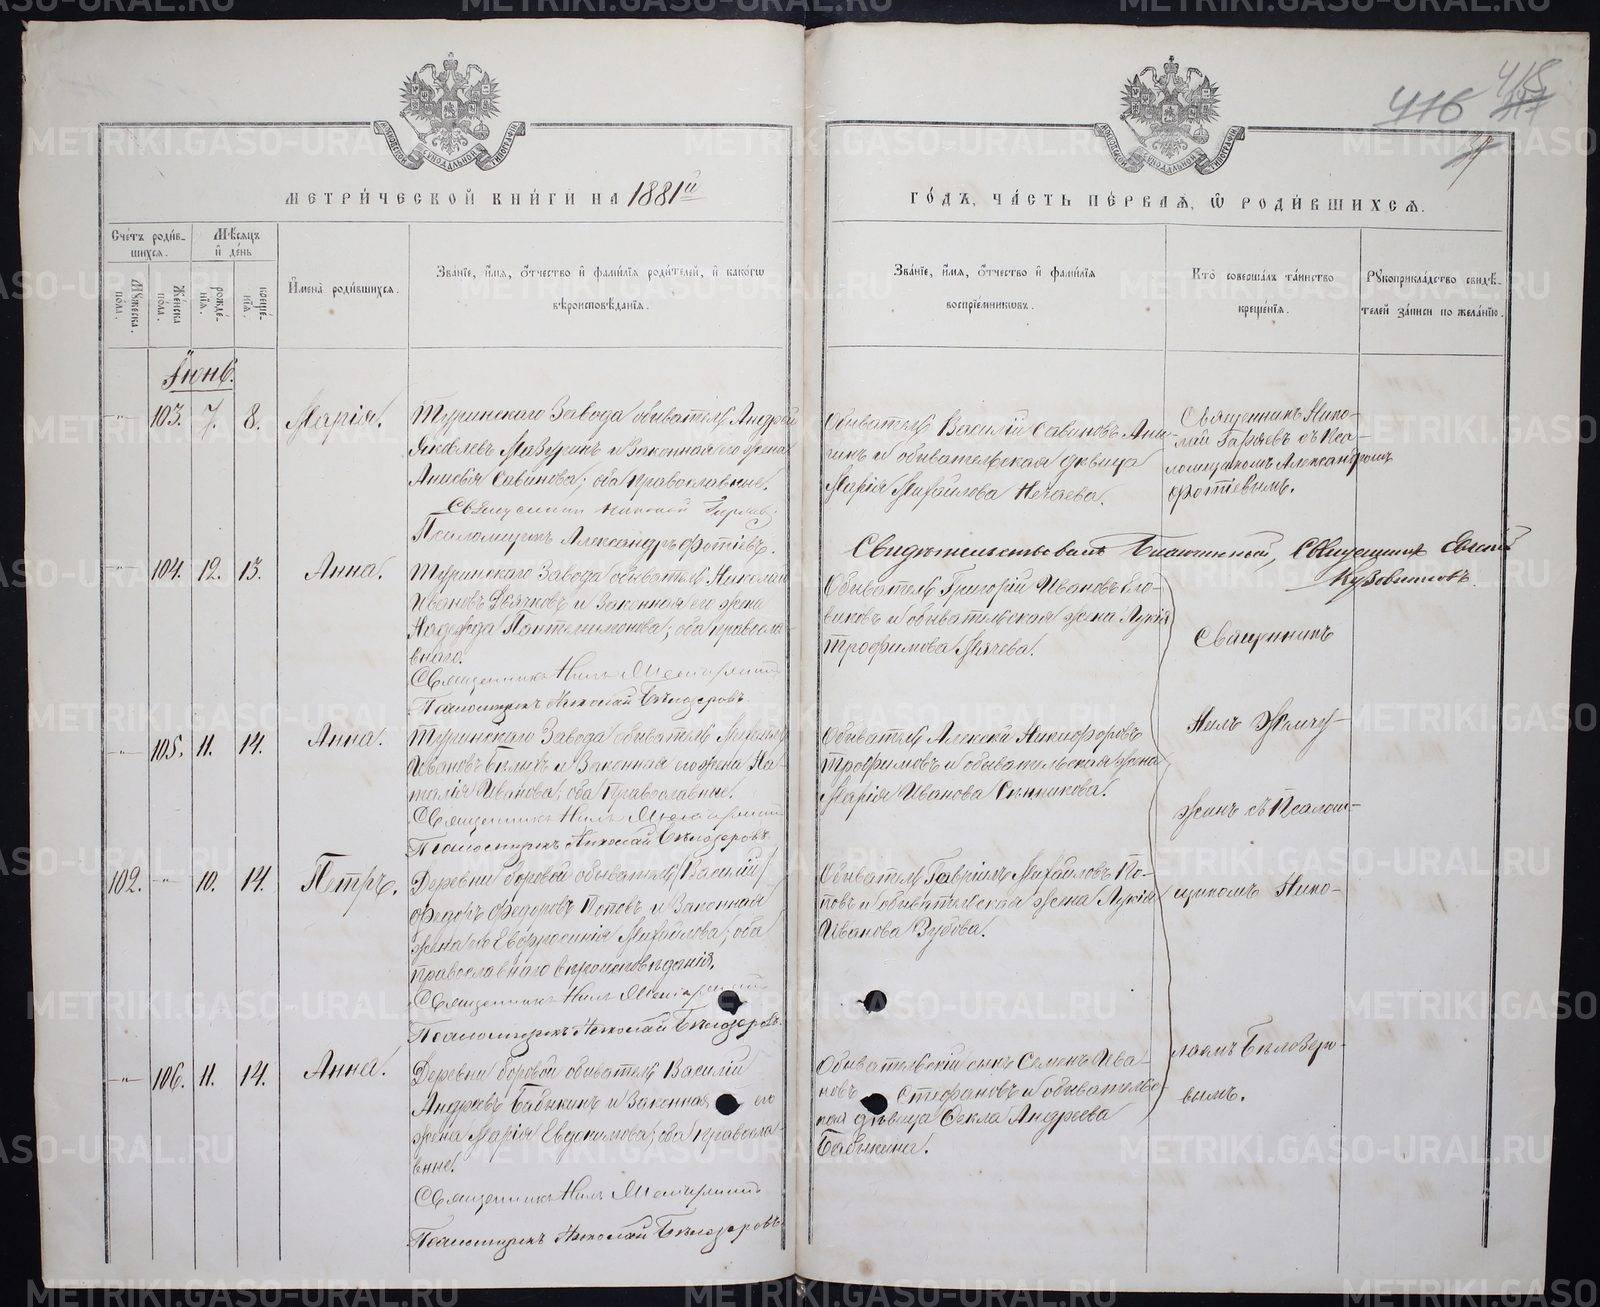 416 418
МЕТРИ́ЧЕСКОЙ КНИ́ГИ НА 1881й
ГО́ДЪ, ЧА́СТЬ ПЕ́РВАѦ, Ѡ РОДИ́ВШИХСѦ.
Сче́тъ роди́в-
шихсѧ.
Мѣсѧцъ
и де́нь
Мꙋжеска
пола.
Же́нска
пола.
рожде-
нїѧ.
креще-
нїѧ.
И҆мена̀ роди́вшихсѧ.
Зва́нїе, и҆́мѧ, ѻ҆́тчество и҆ фами́лїѧ роди́телей, и҆ како́гѡ
вѣроисповѣ́данїѧ.
Зва́нїе, и҆́мѧ, ѻ҆́тчество и҆ фами́лїѧ
воспрїе́мниковъ.
Кто̀ соверша́лъ та́инство
креще́нїѧ.
Рꙋкоприкла́дство свидѣ́-
телей за́писи по жела́нїю.
Іюнь.
-"- 103. 7. 8. Марія.
Туринскаго Завода обыватель Андрей
Яковлевъ Мазуринъ и законная его жена
Анисья Савинова; оба православные.
Священникъ Николай
Псаломщикъ Александръ Фотіевъ.
Обыватель Василій Савиновъ
и обывательская дѣвица
Марія Михайлова Нечаева.
Священникъ Нико-
лай съ Пса-
ломщикомъ Александромъ
Фотіевымъ.
Свидѣтельствовалъ Благочинный, Священникъ
-"- 104. 12. 13. Анна.
Туринскаго Завода обыватель Николай
Ивановъ Дьячковъ и законная его жена
Надежда Пантелимонова; оба правосла-
внаго.
Священникъ Нилъ
Псаломщикъ Николай Бѣлозеровъ
Обыватель Григорій Ивановъ
и обывательская жена Лукія
Трофимова Мячева.
Священникъ
-"- 105. 11. 14. Анна.
Туринскаго Завода обыватель Михаилъ
Ивановъ Бѣлыхъ и законная его жена На-
талія Иванова; оба православные.
Священникъ Нилъ
Псаломщикъ Николай Бѣлозеровъ
Обыватель Алексѣй Никифоровъ
Трофимовъ и обывательская жена
Марія Иванова Ситникова.
Нилъ Жемчу-
жинъ съ Псалом-
102. -"- 10. 14. Петръ.
Деревни Боровой обыватель Василій
Федоръ Федоровъ Поповъ и законная
жена его Евфросинія Михайлова; оба
православнаго вѣроисповѣданія.
Священникъ Нилъ
Псаломщикъ Николай Бѣлозеровъ
Обыватель Гавріилъ Михайловъ По-
повъ и обывательская жена Лукія
Иванова Зубова.
щикомъ Нико-
-"- 106. 11. 14. Анна.
Деревни Боровой обыватель Василій
Андреевъ Бабыкинъ и законная его
жена Марія Евдокимова; оба правосла-
вные.
Священникъ Нилъ
Псаломщикъ Николай Бѣлозеровъ
Обывательскій сынъ Семенъ Ива-
новъ Стефановъ и обывательс-
кая дѣвица Фекла Андреева
Бабыкина.
лаемъ Бѣлозеро-
вымъ.
METRIKI.GASO-URAL.RU